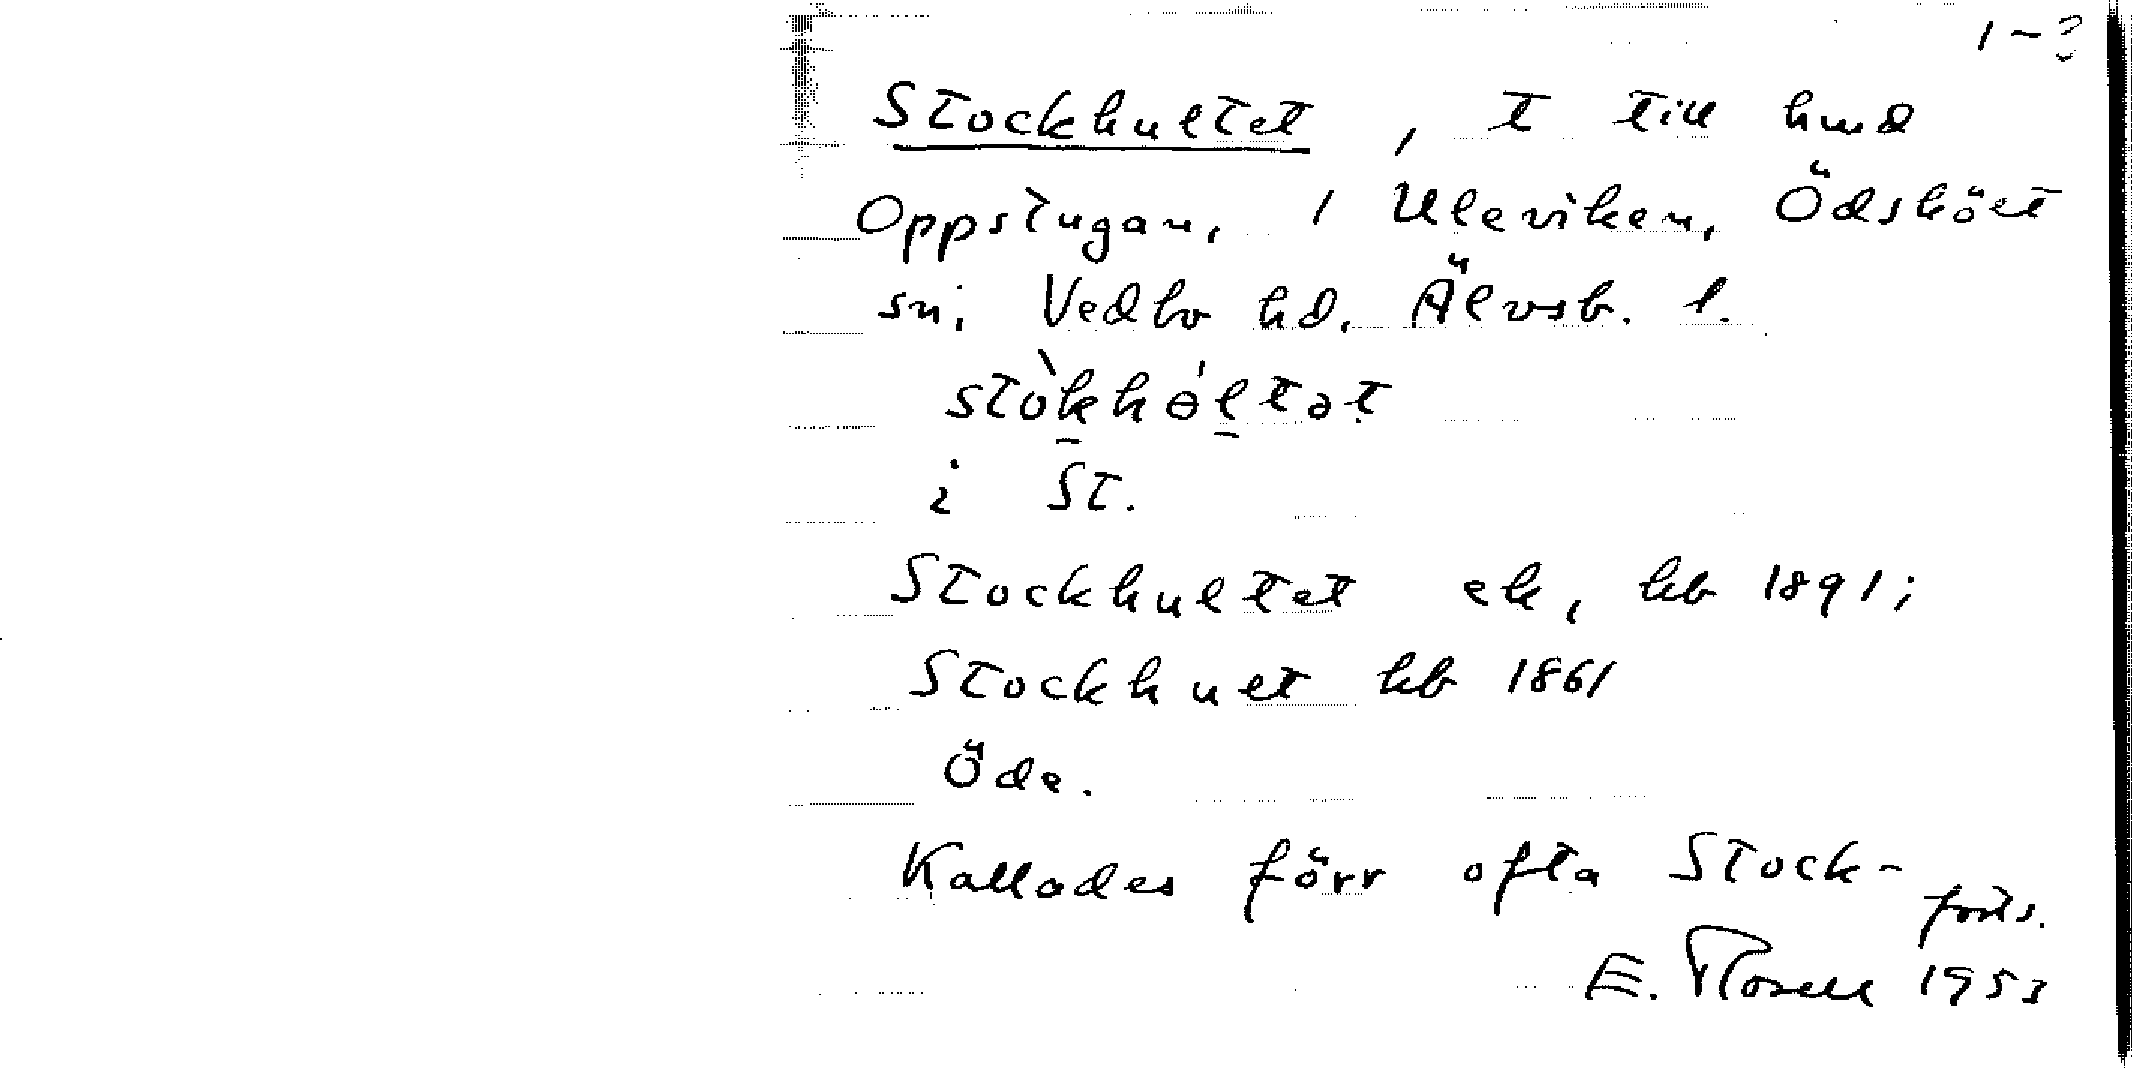 1-3
Stockhultet, t till hmd
Oppstugan, 1 Uleviken, Ödskölt
sn, Vedbo hd. Älvsb. l.
stòkhɵ́ltət
i St.
Stockhultet ek, kb 1891;
Stockhuet kb 1861
Öde.
Kallades förr ofta Stock-
forts.
E. Rosell 1953